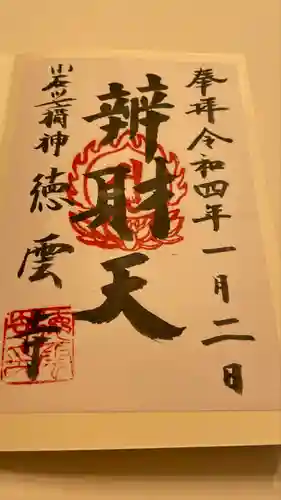 奉拝 令和四年一月二日
辨財天
小石川七福神
徳雲寺